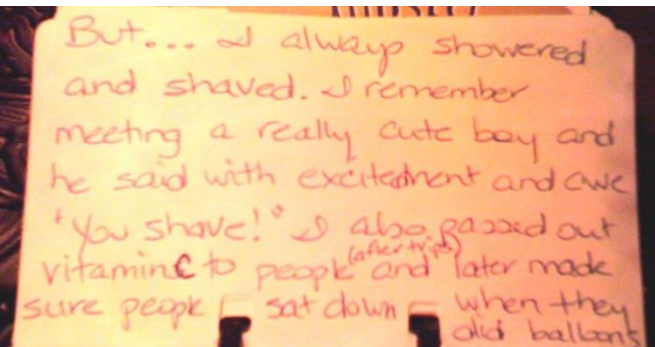 But... I always showered
and shaved. I remember
meeting a really cute boy and
he said with excitedment and awe
"You shave!" I also passed out
vitamin C to people (after trips) and later made
sure people sat down when they
did balloons